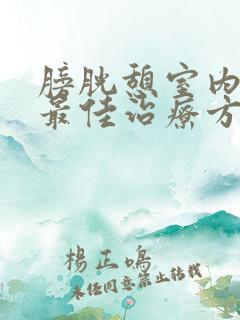 膀胱憩室内
最佳治療方
楊正鳴
未經同意禁止轉載